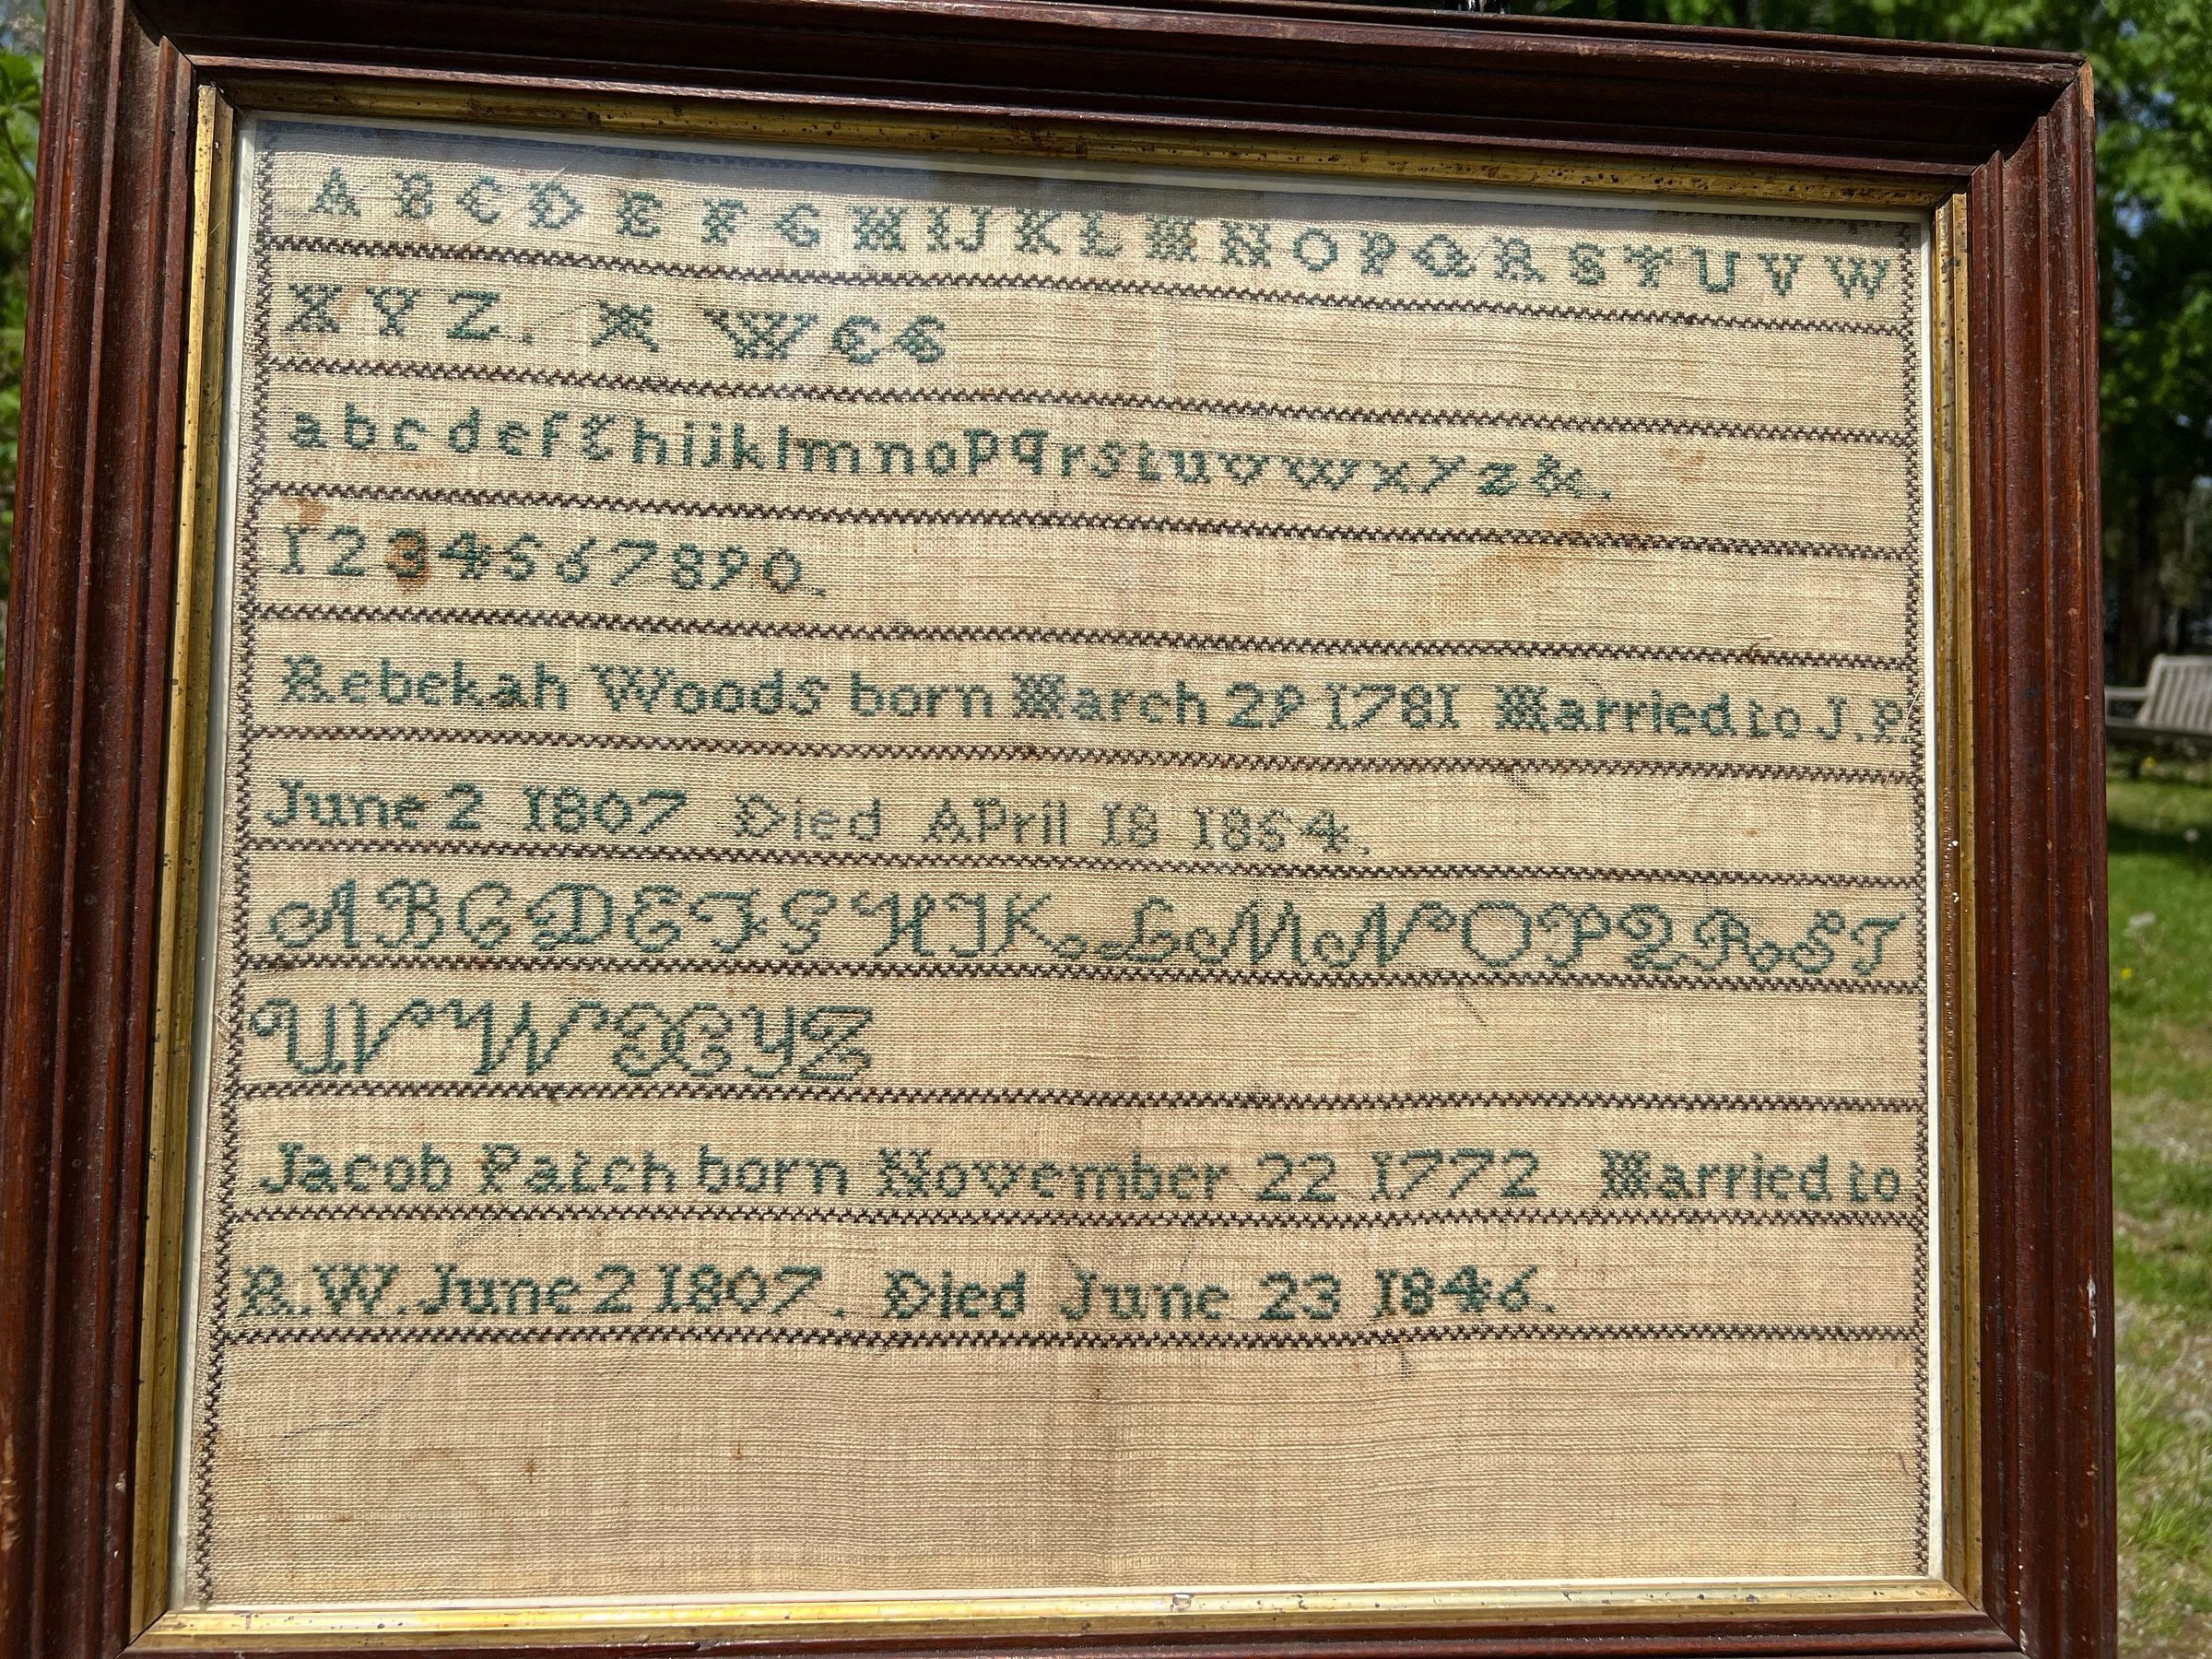 A B C D E F G H I J K L M N O P Q R S T U V W
X Y Z. W &
a b c d e f g h i j k l m n o p q r s t u v w x y z &.
1 2 3 4 5 6 7 8 9 0.
Rebekah Woods born March 29 1781 Married to J.P.
June 2 1807 Died April 18 1854.
A B C D E F G H I K L M N O P Q R S T
U V W X Y Z
Jacob Patch born November 22 1772 Married to
R.W. June 2 1807. Died June 23 1846.